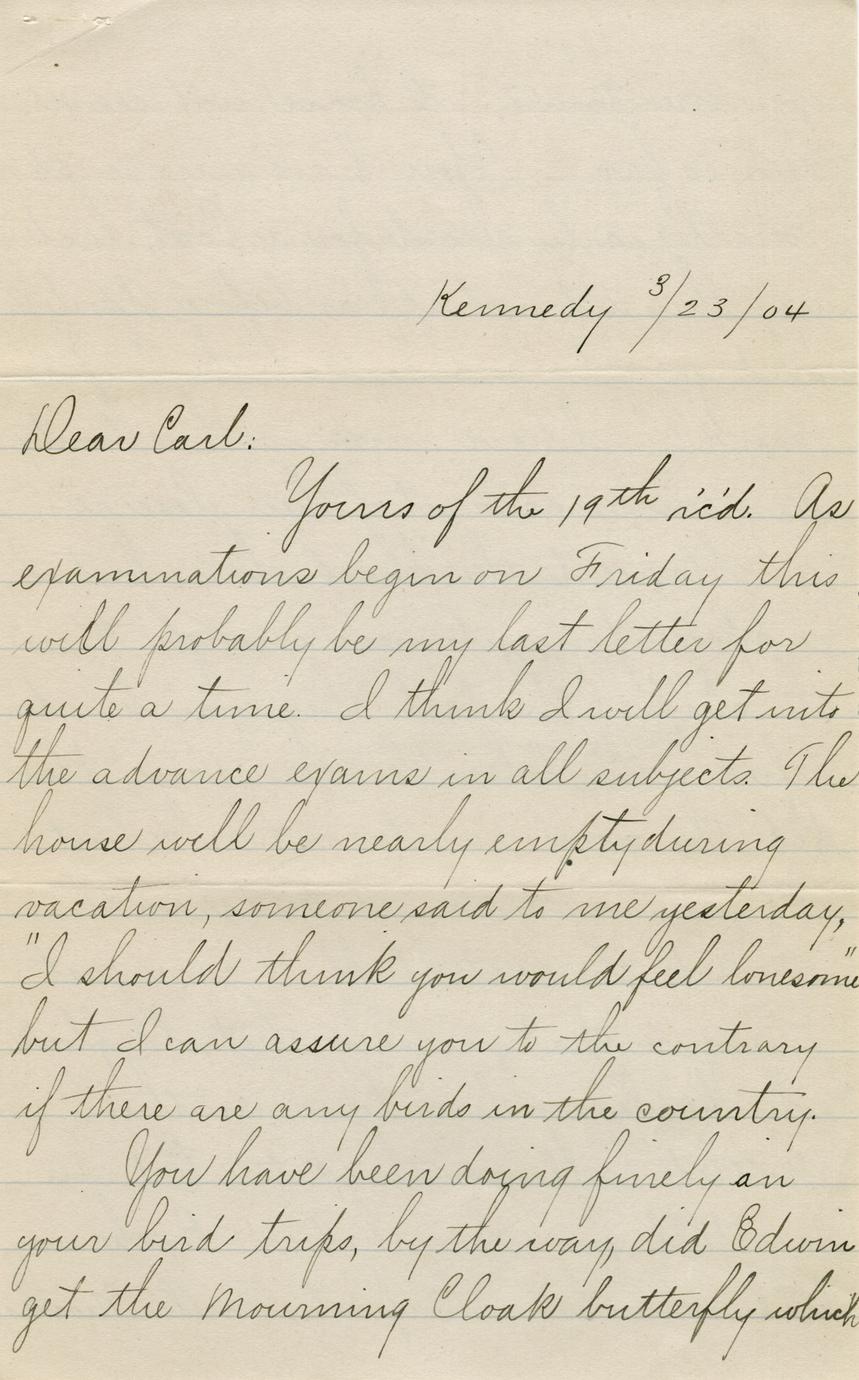 Kennedy 3/23/04
Dear Carl:
Yours of the 19th r'c'd. As
examinations begin on Friday this
will probably be my last letter for
quite a time. I think I will get into
the advance exams in all subjects. The
house will be nearly empty during
vacation, someone said to me yesterday,
"I should think you would feel lonesome"
but I can assure you to the contrary
if there are any birds in the country.
You have been doing finely on
your bird trips, by the way, did Edwin
get the Mourning Cloak butterfly which